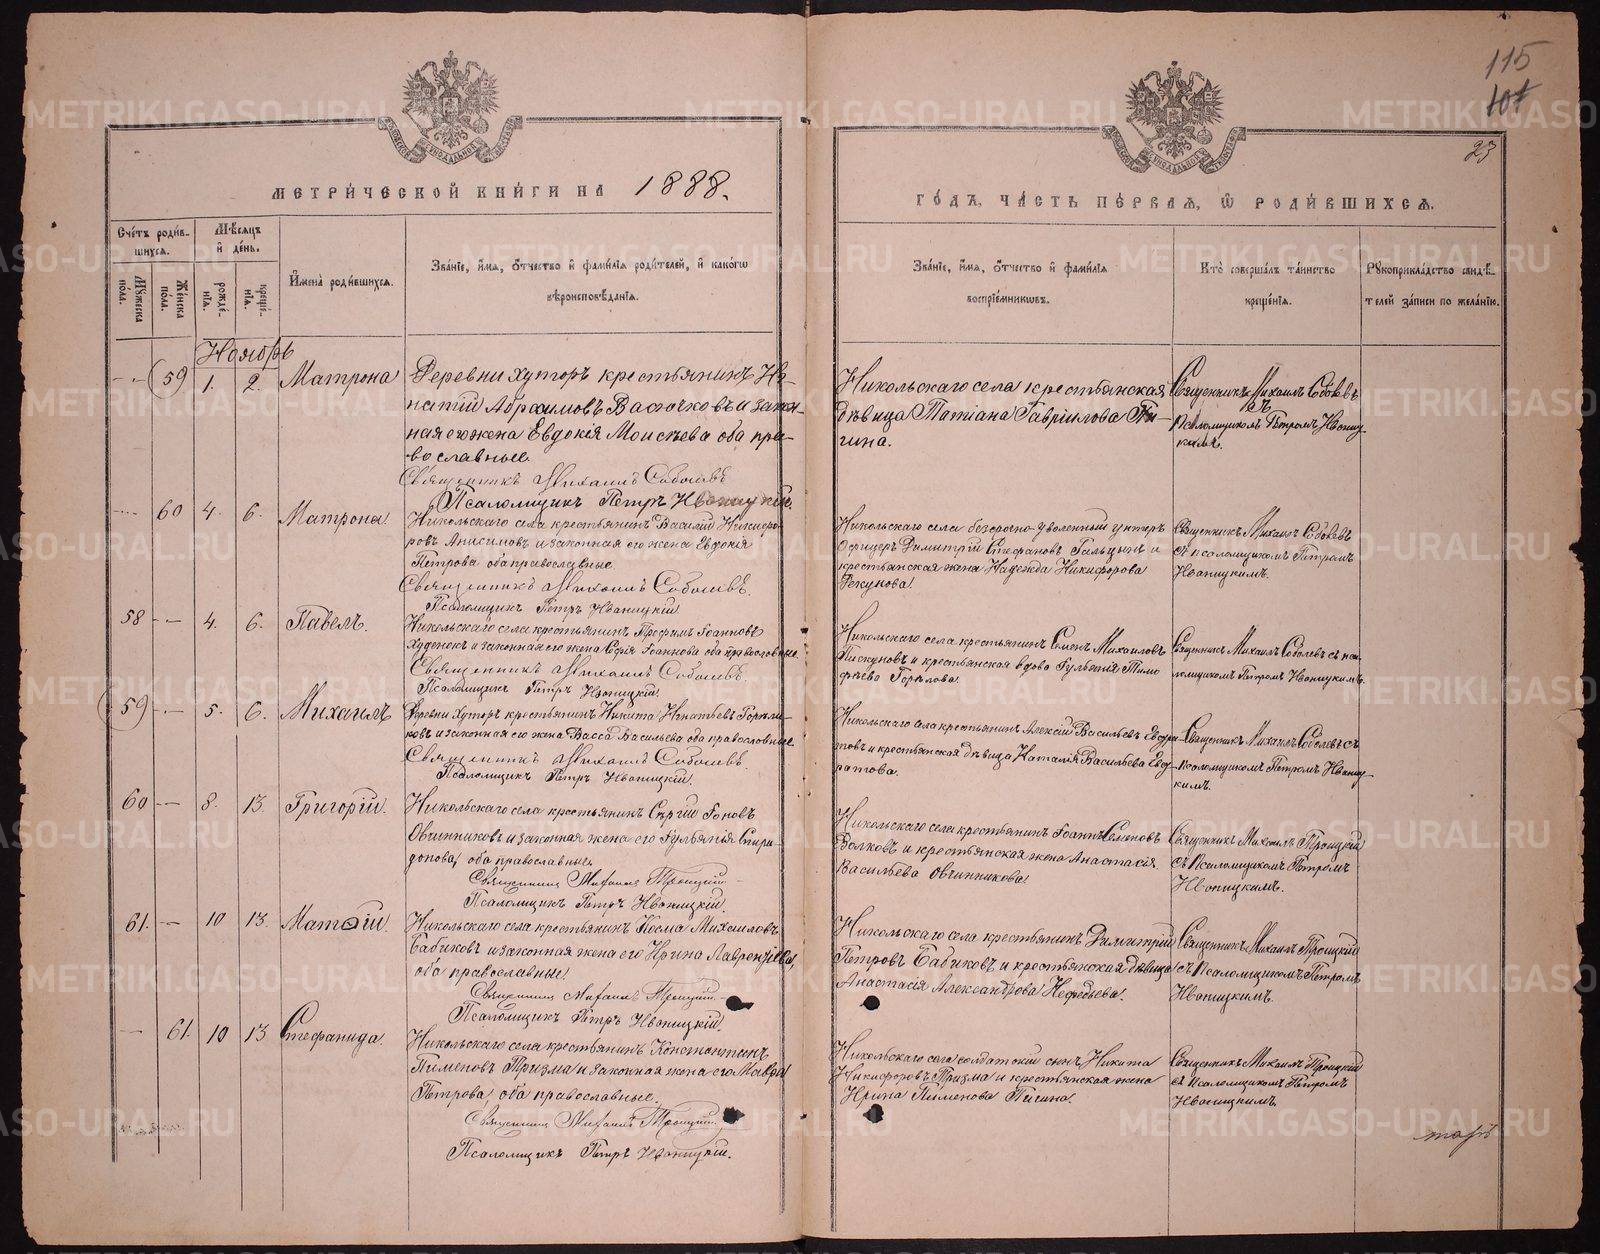 115
23
МЕТРИ́ЧЕСКОЙ КНИ́ГИ НА 1888.
ГО́ДЪ, ЧА́СТЬ ПЕ́РВАЯ, Ѿ РОДИ́ВШИХСЯ.
Сче́тъ роди́вшихся.
Мѣ́сяцъ и де́нь.
Му́жеска по́ла.
Же́нска по́ла.
рожде́нія.
креще́нія.
И́мена роди́вшихся.
Зва́ніе, и́мя, о́тчество и фами́лія роди́телей, и како́гѡ
вѣроисповѣ́данія.
Зва́ніе, и́мя, о́тчество и фами́лія
воспріе́мниковъ.
Кто̀ соверша́лъ та́инство
креще́нія.
Рукоприкла́дство свидѣ́-
телей за́писи по жела́нію.
Ноябрь
59 1. 2. Матрона
Деревни Хуторъ крестьянинъ Иг-
натій Абрамовъ Васючковъ и закон-
ная его жена Евдокія Моисѣева оба пра-
вославные.
Священникъ Михаилъ Соболевъ
Псаломщикъ Петръ Ивоницкій.
Никольскаго села крестьянская
дѣвица Татіана Гавріилова Пи-
гина.
Священникъ Михаилъ Соболевъ
съ
Псаломщикомъ Петромъ Ивониц-
кимъ.
60 4. 6. Матрона.
Никольскаго села крестьянинъ Василій Никифо-
ровъ Анисимовъ и законная его жена Евдокія
Петрова оба православные.
Священникъ Михаилъ Соболевъ.
Псаломщикъ Петръ Ивоницкій
Никольскаго села безсрочно-уволенный унтеръ
Офицеръ Димитрій Стефановъ Гальцинъ и
крестьянская жена Надежда Никифорова
Рекунова.
Священникъ Михаилъ Соболевъ
съ псаломщикомъ Петромъ
Ивоницкимъ.
58 4. 6. Павелъ.
Никольскаго села крестьянинъ Трофимъ Іоанновъ
Худенекъ и законная его жена Софія Іоаннова оба православные.
Священникъ Михаилъ Соболевъ.
Псаломщикъ Петръ Ивоницкій.
Никольскаго села крестьянинъ Семенъ Михаиловъ
Пискуновъ и крестьянская вдова Гульенія Тимо
фѣева Горѣлова.
Священникъ Михаилъ Соболевъ съ пса-
ломщикомъ Петромъ Ивоницкимъ.
59 5. 6. Михаилъ
Деревни Хуторъ крестьянинъ Никита Игнатьевъ Горѣли-
ковъ и законная его жена Васса Васильева оба православные.
Священникъ Михаилъ Соболевъ.
Псаломщикъ Петръ Ивоницкій.
Никольскаго села крестьянинъ Алексій Васильевъ Евдра-
товъ и крестьянская дѣвица Наталія Васильева Евд-
ратова.
Священникъ Михаилъ Соболевъ съ
псаломщикомъ Петромъ Ивониц-
кимъ.
60 8. 13. Григорій.
Никольскаго села крестьянинъ Сергій Іоновъ
Овчинниковъ и законная жена его Гульянія Спири-
донова, оба православные.
Священникъ Михаилъ Троицкій
Псаломщикъ Петръ Ивоницкій.
Никольскаго села крестьянинъ Іоаннъ Семеновъ
Волковъ и крестьянская жена Анастасія
Васильева Овчинникова.
Священникъ Михаилъ Троицкій
съ Псаломщикомъ Петромъ
Ивоницкимъ.
61. 10 13. Матѳій.
Никольскаго села крестьянинъ Косма Михаиловъ
Бабиковъ и законная жена его Ирина Лаврентіева,
оба православные.
Священникъ Михаилъ Троицкій
Псаломщикъ Петръ Ивоницкій.
Никольскаго села крестьянинъ Димитрій
Петровъ Бабиковъ и крестьянская дѣвица
Анастасія Александрова Нефедьева.
Священникъ Михаилъ Троицкій
съ Псаломщикомъ Петромъ
Ивоницкимъ.
61. 10 13 Стефанида.
Никольскаго села крестьянинъ Константинъ
Пименовъ Призма и законная жена его Мавра
Петрова, оба православные.
Священникъ Михаилъ Троицкій
Псаломщикъ Петръ Ивоницкій.
Никольскаго села солдатскій сынъ Никита
Никифоровъ Призма и крестьянская жена
Ирина Пименова Пигина.
Священникъ Михаилъ Троицкій
съ Псаломщикомъ Петромъ
Ивоницкимъ.
METRIKI.GASO-URAL.RU